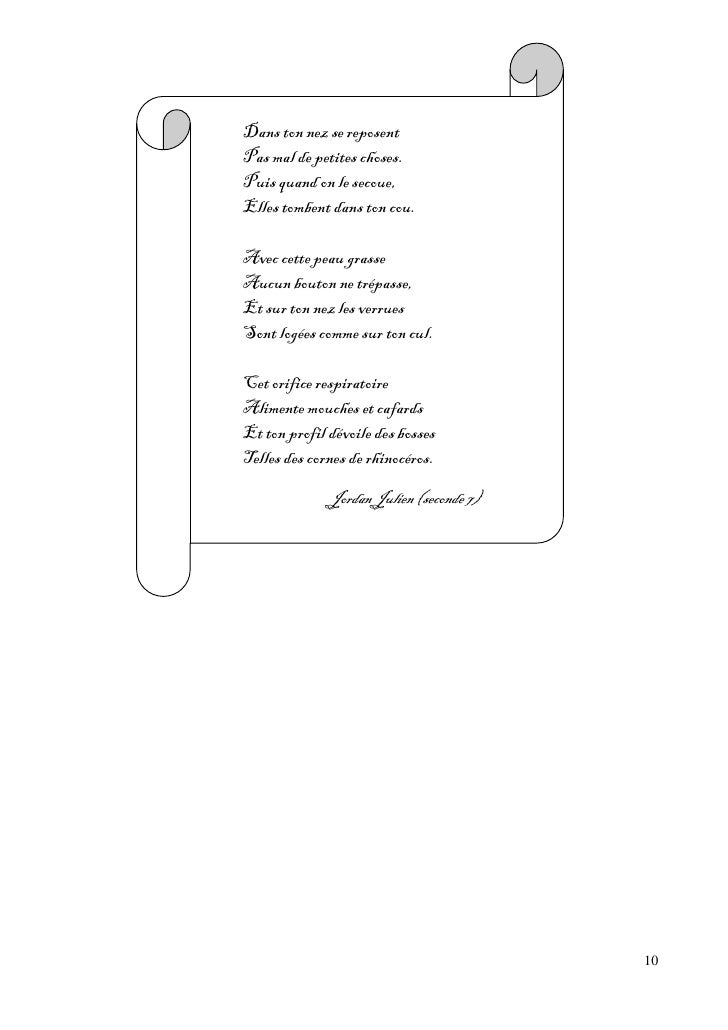 Dans ton nez se reposent
Pas mal de petites choses.
Puis quand on le secoue,
Elles tombent dans ton cou.
Avec cette peau grasse
Aucun bouton ne trépasse,
Et sur ton nez les verrues
Sont logées comme sur ton cul.
Cet orifice respiratoire
Alimente mouches et cafards
Et ton profil dévoile des bosses
Telles des cornes de rhinocéros.
Jordan Julien (seconde 7)
10